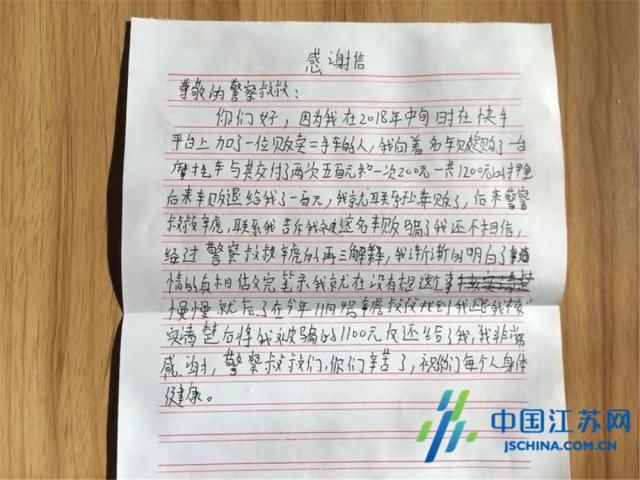 感谢信
尊敬的警察叔叔：
你们好，因为我在2018年中旬时在快手
平台上加了一位贩卖二手车的人，我向着名车贩购了一台
摩托车与其交付了两次五百元和一次200元一共1200元的押金
后来车贩退给我了一百元，我就联系不上卖贩了，后来警察
叔叔辛虎，联系我告诉我被这名车贩骗了我还不相信，
经过警察叔叔辛虎的再三解释，我渐渐的明白了事
情的真相做完笔录我就在没有想这事
慢慢就后了在今年11月码辛虎叔叔找到我跟我核
实清楚后将我被骗的1100元反还给了我，我非常
感谢，警察叔叔们，你们辛苦了，祝你们每个人身体
健康。
中国江苏网
JSCHINA.COM.CN